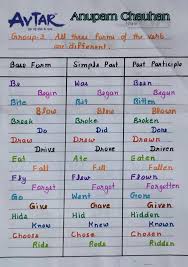 AVTAR Anupam Chauhan
Group-3. All three forms of the verb
are different.
Base Form Simple Past Past Participle
Be Was Been
Begin Began Begun
Bit Bitten
Blow Blew Blown
Break Broke Broken
Do Did Done
Draw Drew Drawn
Drive Drove Driven
Eat Ate Eaten
Fall Fell Fallen
Fly Flew Flown
Forget Forgot Forgotten
Go Went Gone
Give Gave Given
Hide Hid Hidden
Know Knew Known
Choose Chose Chosen
Ride Rode Ridden